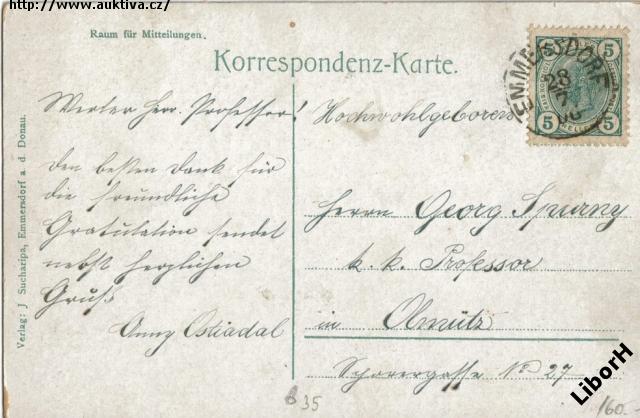 http://www.auktiva.cz/
Raum für Mitteilungen.
Korrespondenz-Karte.
5 5
5 5
EMMERSDORF
28
7
Werter Herr Professor!
den besten Dank für
die freundliche
Gratulation sendet
nebst herzlichen
Gruß
Anny Ostiadal
Hochwohlgeboren
Herrn Georg Spurny
k. k. Professor
in Olmütz
No 27
Verlag: J Sucharipa, Emmersdorf a. d. Donau.
35
160.-
LiborH